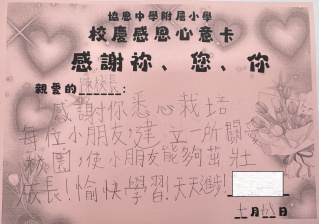 協恩中學附屬小學
校慶感恩心意卡
感謝祢、您、你
親愛的陳校長:
感謝你悉心栽培
每位小朋友,建立一所關愛
校園,使小朋友能夠茁壯
成長!愉快學習,天天進步!
十月廿八日